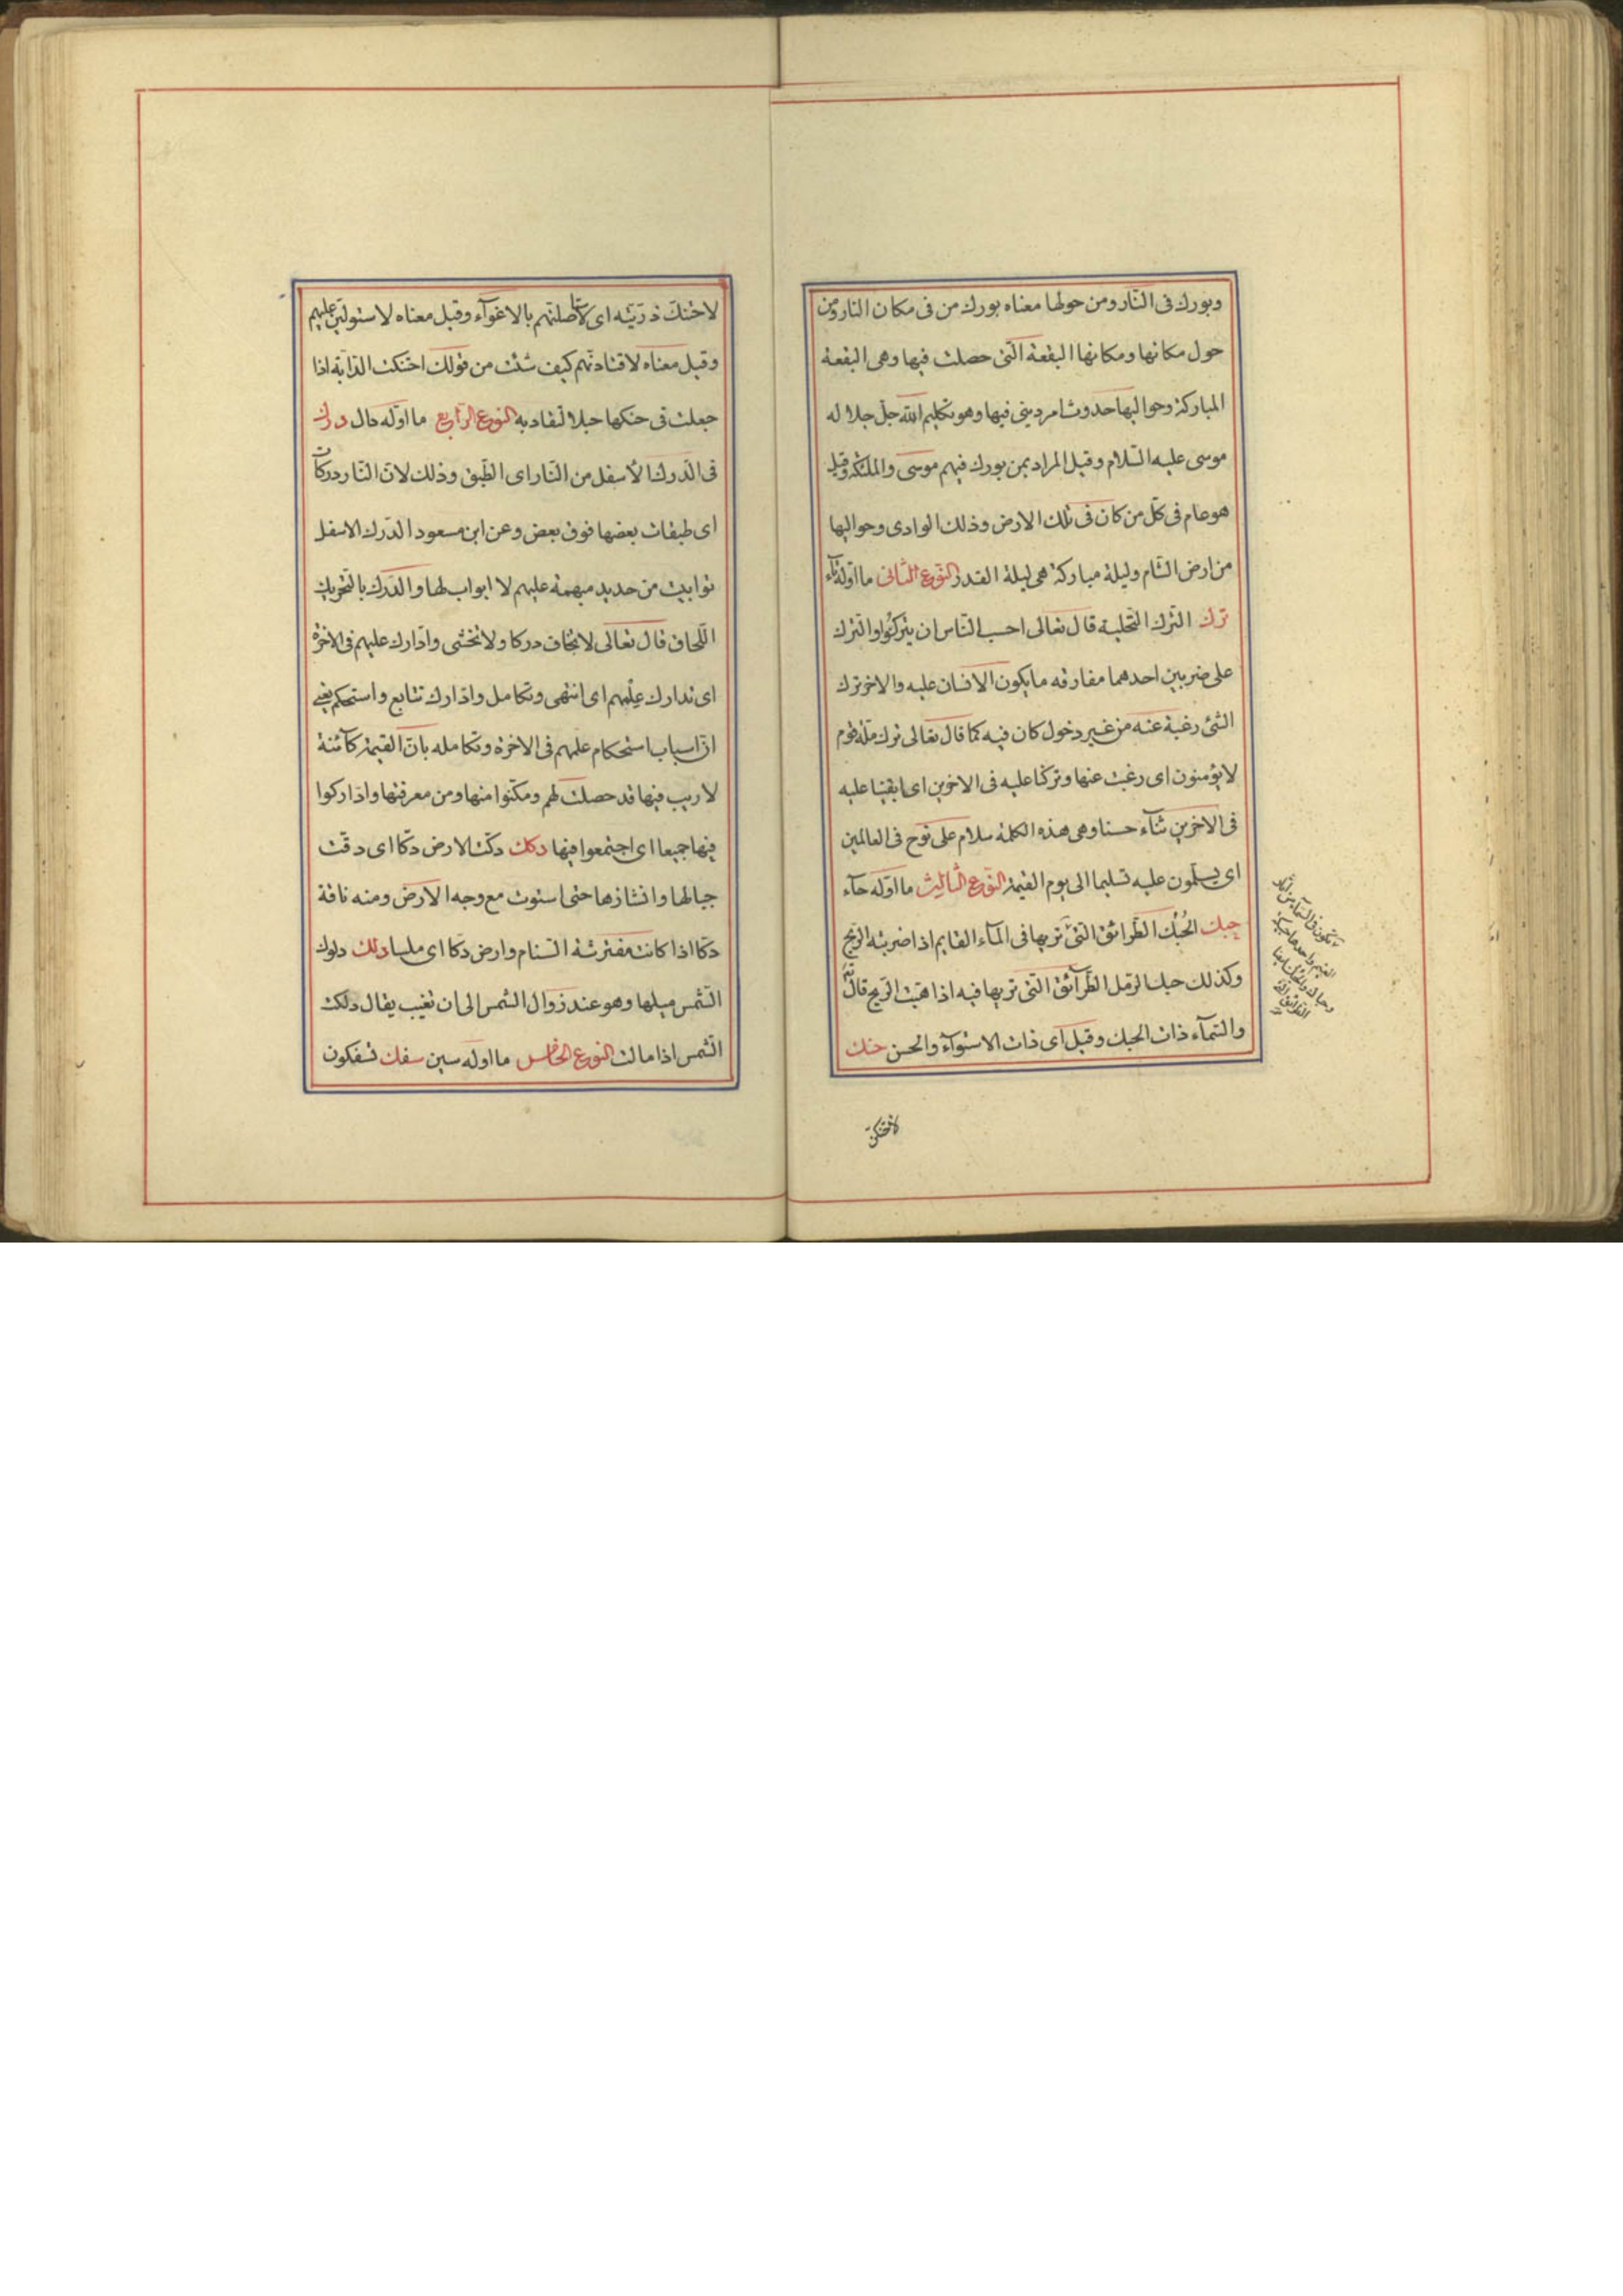 وبورك فى النّار ومن حولها معناه بورك من فى مكان النار ومن
حول مكانها ومكانها البقعة الّتى حصلت فيها وهى البقعة
المباركة وحواليها حدوث امر دينى فيها وهو تكليم الله جلّ جلاله
موسى عليه السّلام وقيل المراد بمن بورك فيهم موسى والملئكة وقيل
هو عام فى كلّ من كان فى تلك الارض وذلك الوادى وحواليها
من ارض الشّام وليلة مباركة هى ليلة القدر النّوع الثّانى ما اوّله تاء
ترك التّرك التّخلية قال تعالى احسب النّاس ان يتركوا والتّرك
على ضربين احدهما مفارقه ما يكون الانسان عليه والاخر ترك
الشّئ رغبة عنه من غير دخول كان فيه كما قال تعالى تركت ملّة قوم
لا يؤمنون اى رغبت عنها وتركنا عليه فى الاخرين اى ابقينا عليه
فى الاخرين ثنآء حسنا وهى هذه الكلمة سلام على نوح فى العالمين
اى يسلّمون عليه تسليما الى يوم القيمة النّوع الثّالث ما اوّله حآء
حبك الحُبُك الطّرائق التّى تريها فى المآء القايم اذا ضربته الرّيح
وكذلك حبك الرّمل الطّرآئق التى تريها فيه اذا هبّت الرّيح قال تع
والسّمآء ذات الحبك وقيل اى ذات الاستوآء والحسن حنك
لاحتنكنّ
لاحتنكنّ ذرّيّته اى لاستاصلنّهم بالاغوآء وقيل معناه لاستولينّ عليهم
وقيل معناه لاقتادنّهم كيف شئت من قولك احتنكت الدّابّة اذا
جعلت فى حنكها حبلا تقاد به النوع الرّابع ما اوّله دال درك
فى الدّرك الأسفل من النّار اى الطّبق وذلك لانّ النّار دركات
اى طبقات بعضها فوق بعض وعن ابن مسعود الدّرك الاسفل
توابيت من حديد مبهمة عليهم لا ابواب لها والدّرك بالتّحريك
اللّحاق قال تعالى لا تخاف دركا ولا تخشى وادّارك علمهم فى الاخرة
اى تدارك علمهم اى انتهى وتكامل وادّارك تتابع واستحكم يعنى
انّ اسباب استحكام علمهم فى الاخرة وتكامله بانّ القيمة كآئنة
لا ريب فيها قد حصلت لهم ومكّنوا منها ومن معرفتها وادّاركوا
فيها جميعا اى اجتمعوا فيها دكك دكّت الارض دكّا اى دقّت
جبالها وانشازها حتى استوت مع وجه الارض ومنه ناقة
دكّا اذا كانت مفترشة السّنام وارض دكّا اى ملسا دلك دلوك
الشّمس ميلها وهو عند زوال الشمس الى ان تغيب يقال دلكت
الشّمس اذا مالت النوع الخامس ما اوله سين سفك تسفكون